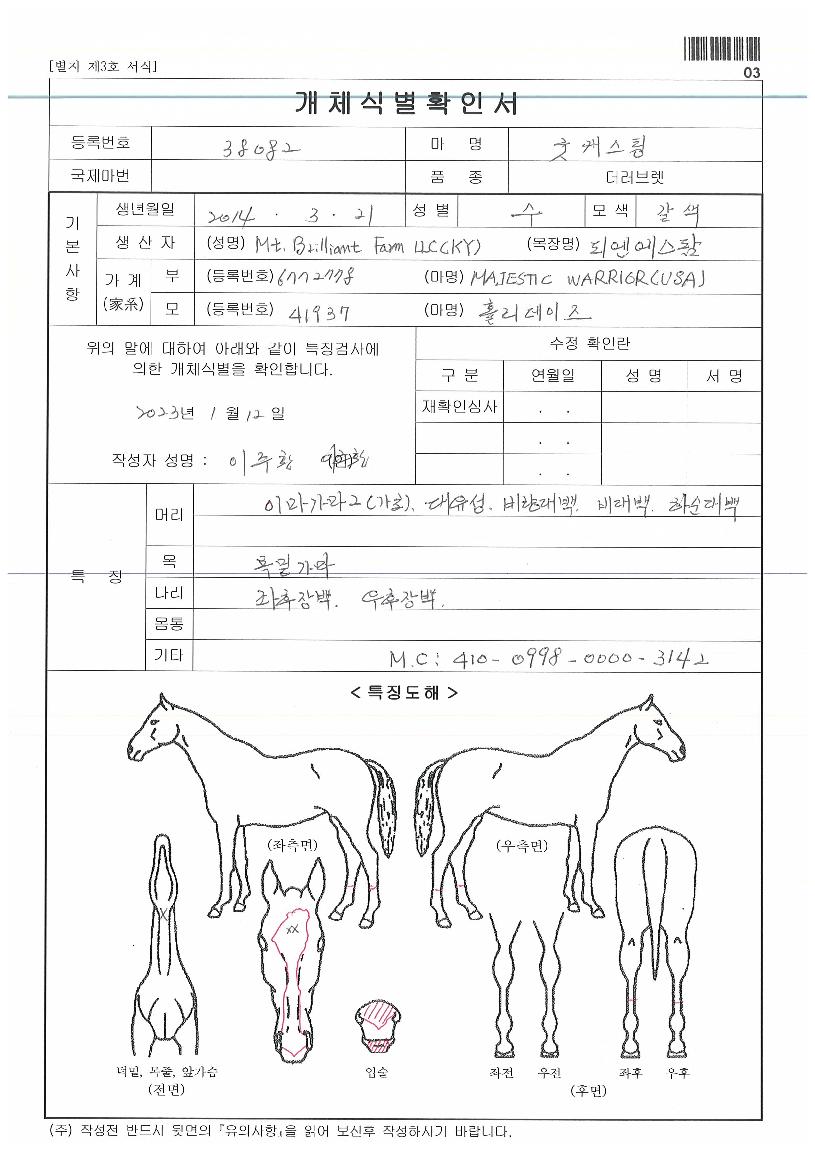 [별지 제3호 서식]
03
개체식별확인서
등록번호 38082 마 명 굿캐스팅
국제마번 품 종 더러브렛
기본사항
생년월일 2014 . 3 . 21 성 별 수 모 색 갈색
생 산 자 (성명) Mt. Brilliant Farm LLC(KY) (목장명) 티엔에스팜
가 계 (家系) 부 (등록번호) 6772778 (마명) MAJESTIC WARRIOR(USA)
모 (등록번호) 41937 (마명) 홀리데이즈
위의 말에 대하여 아래와 같이 특징검사에
의한 개체식별을 확인합니다.
2023년 1 월 12 일
작성자 성명 : 이주황
수정 확인란
구 분 연월일 성 명 서 명
재확인심사 . .
. .
. .
특 징
머리 이마가마2(가로). 대유성. 비량대백. 비대백. 하순대백
목 목밑가마
나리 좌후장백. 우후장백.
몸통
기타 M.C: 410-0998-0000-3142
< 특징도해 >
(좌측면) (우측면)
XX
X
턱밑, 목줄, 앞가슴
(전면)
입술
좌전 우전 좌후 우후
(후면)
(주) 작성전 반드시 뒷면의 『유의사항』을 읽어 보신후 작성하시기 바랍니다.